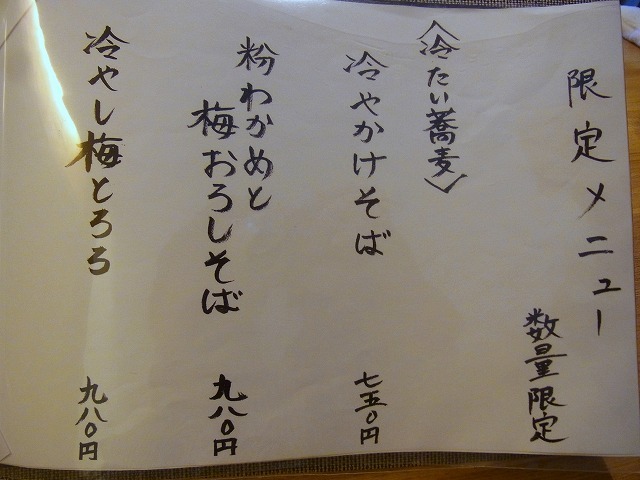 限定メニュー
数量限定
〈冷たい蕎麦〉
冷やかけそば
七五〇円
粉わかめと
梅おろしそば
九八〇円
冷やし梅とろろ
九八〇円